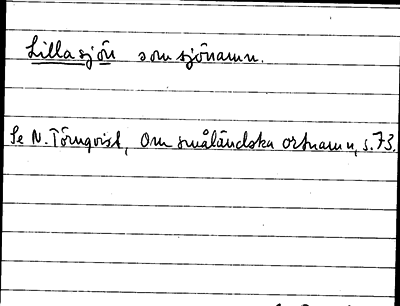 Lillasjön som sjönamn.
Se N. Törnqvist, Om småländska ortnamn, s. 73.